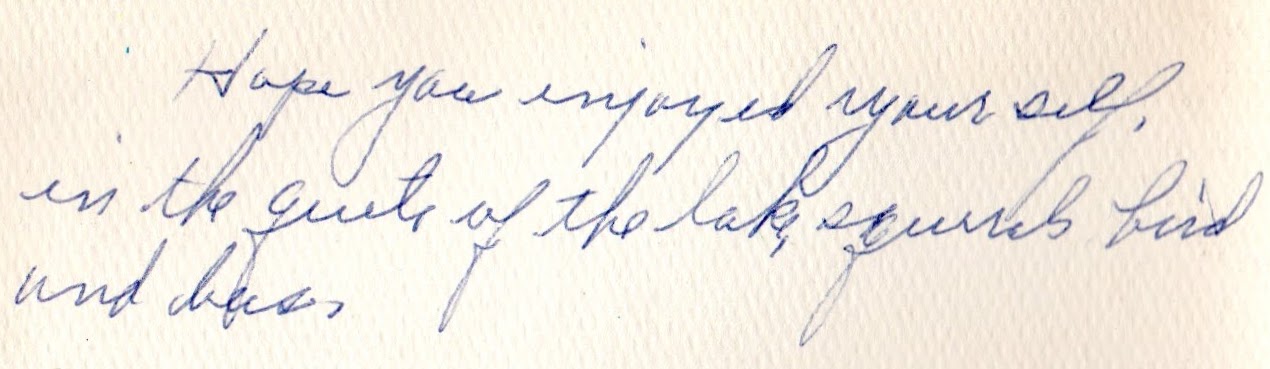 Hope you enjoyed yourself,
in the quite of the lake, squirrels bird
and